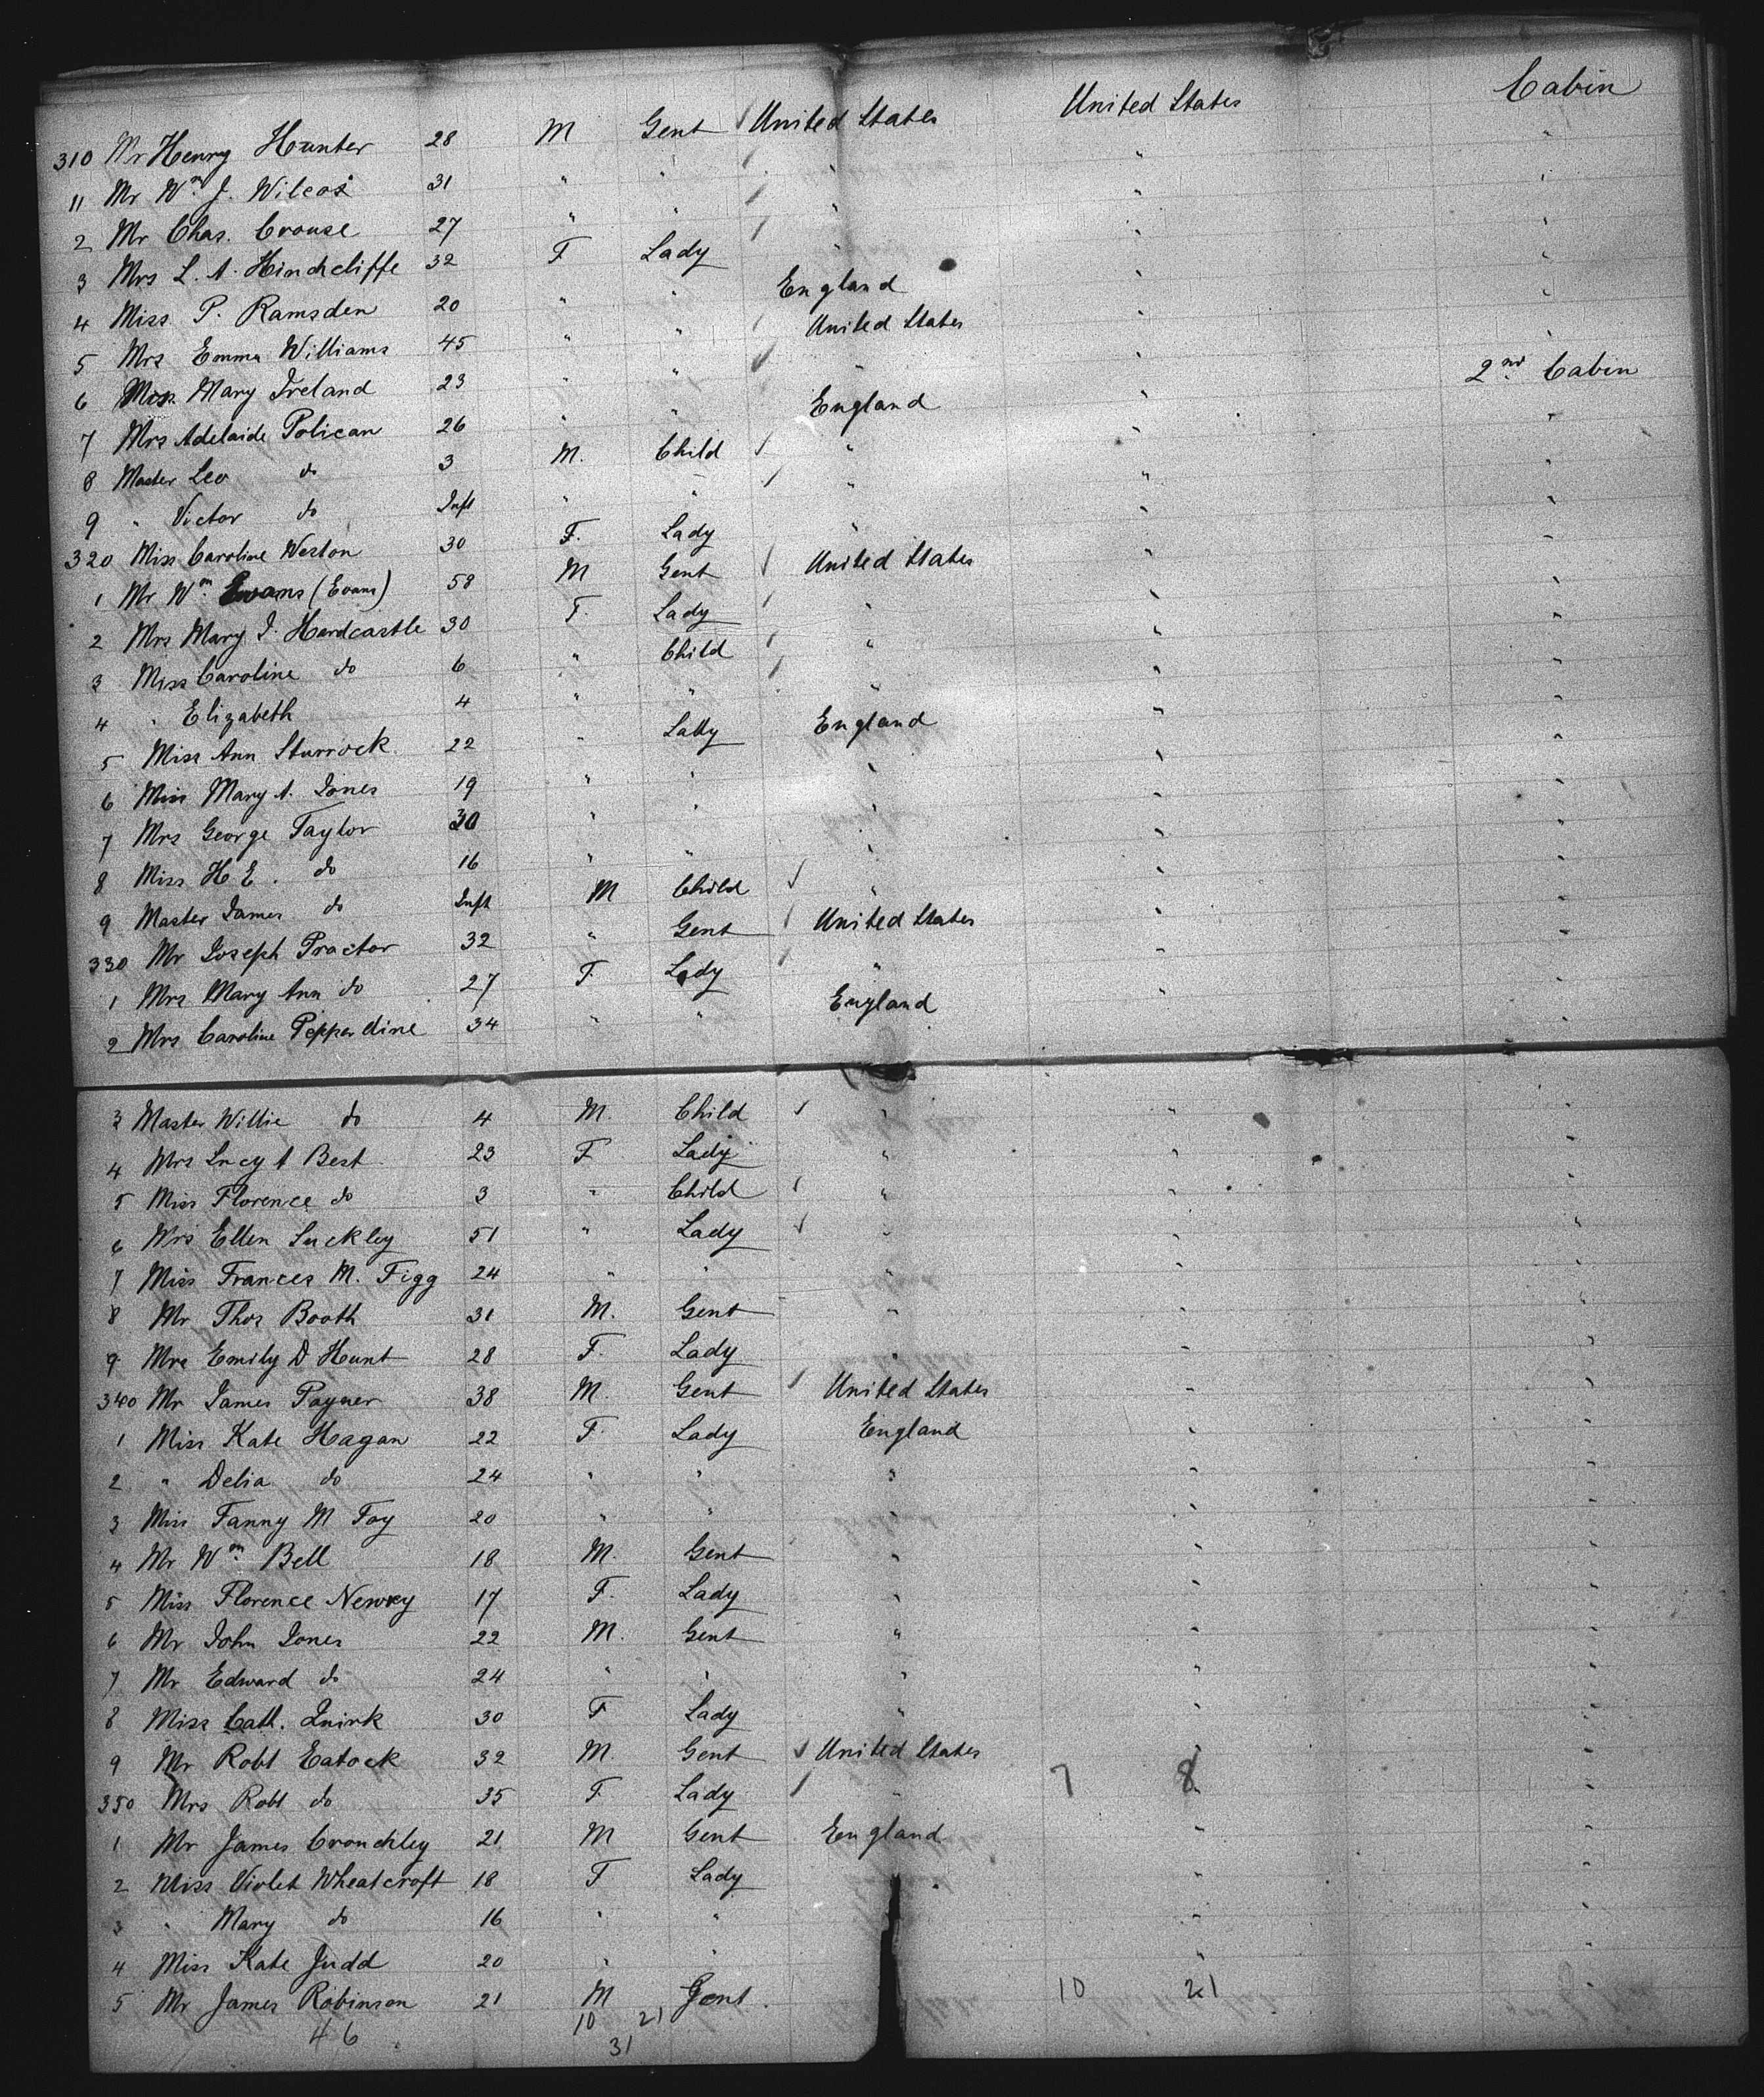 310 Mr Henry Hunter 28 M Gent United States United States Cabin
11 Mr Wm J. Wilcox 31 " " " " "
2 Mr Chas. Crouse 27 " " " " "
3 Mrs L. A. Hindcliffe 32 F Lady " " "
4 Miss P. Ramsden 20 " " England " "
5 Mrs Emma Williams 45 " " United States " "
6 Miss Mary Ireland 23 " " " " 2nd Cabin
7 Mrs Adelaide Polican 26 " " England " "
8 Master Leo do 3 M. Child " " "
9 " Victor do Inft " " " " "
320 Miss Caroline Weston 30 F. Lady " " "
1 Mr Wm Evans (Evans) 58 M Gent United States " "
2 Mrs Mary J. Hardcastle 30 F. Lady " " "
3 Miss Caroline do 6 " Child " " "
4 " Elizabeth 4 " " " " "
5 Miss Ann Sturrock 22 " Lady England " "
6 Miss Mary A. Jones 19 " " " " "
7 Mrs George Taylor 30 " " " " "
8 Miss H E. do 16 " " " " "
9 Master James do Inft M Child " " "
330 Mr Joseph Practor 32 " Gent United States " "
1 Mrs Mary Ann do 27 F. Lady " " "
2 Mrs Caroline Pepperdine 34 " " England " "
3 Master Willie do 4 M. Child " " "
4 Mrs Lucy A Best 23 F Lady " " "
5 Miss Florence do 3 " Child " " "
6 Mrs Ellen Luckley 51 " Lady " " "
7 Miss Frances M. Figg 24 " " " " "
8 Mr Thos Booth 31 M. Gent " " "
9 Mrs Emily D Hunt 28 F. Lady " " "
340 Mr James Payner 38 M. Gent United States " "
1 Miss Kate Hagan 22 F. Lady England " "
2 " Delia do 24 " " " " "
3 Miss Fanny M Foy 20 " " " " "
4 Mr Wm Bell 18 M. Gent " " "
5 Miss Florence Newey 17 F. Lady " " "
6 Mr John Jones 22 M. Gent " " "
7 Mr Edward do 24 " " " " "
8 Miss Cath. Quirk 30 F Lady " " "
9 Mr Robt Eatock 32 M. Gent United States " "
350 Mrs Robt do 35 F. Lady " 7 8 " "
1 Mr James Crouchley 21 M Gent England " "
2 Miss Violet Wheatcroft 18 F Lady " "
3 " Mary do 16 " " " "
4 Miss Kate Judd 20 " " " "
5 Mr James Robinson 21 M Gent. 10 21 "
46 10 21
31